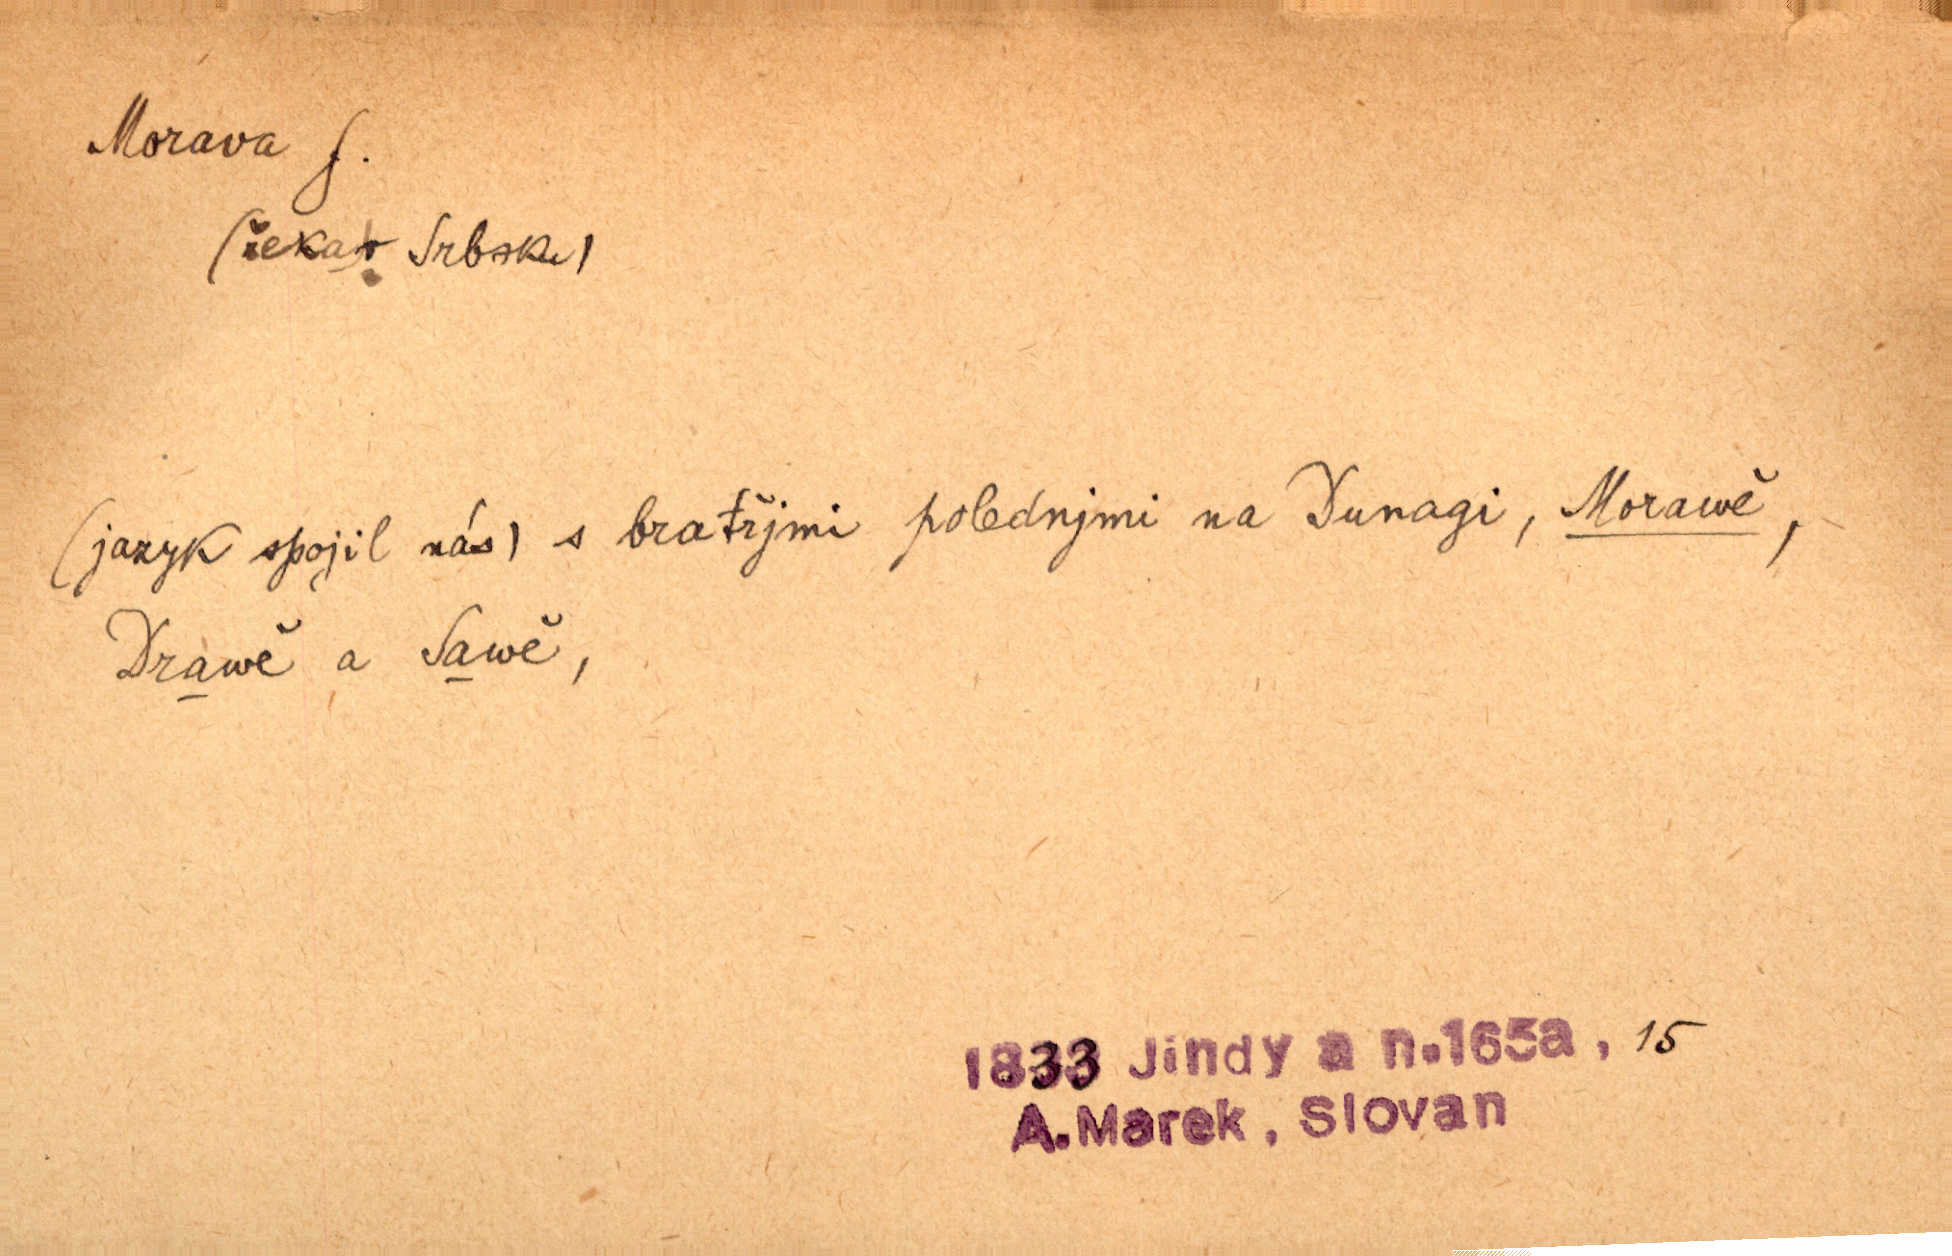 Morava f.
(řeka v Srbsku)
(jazyk spojil nás) s bratřjmi polednjmi na Dunagi, Morawě,
Drawě a Sawě,
1833 Jindy a n.165a, 15
A.Marek, Slovan